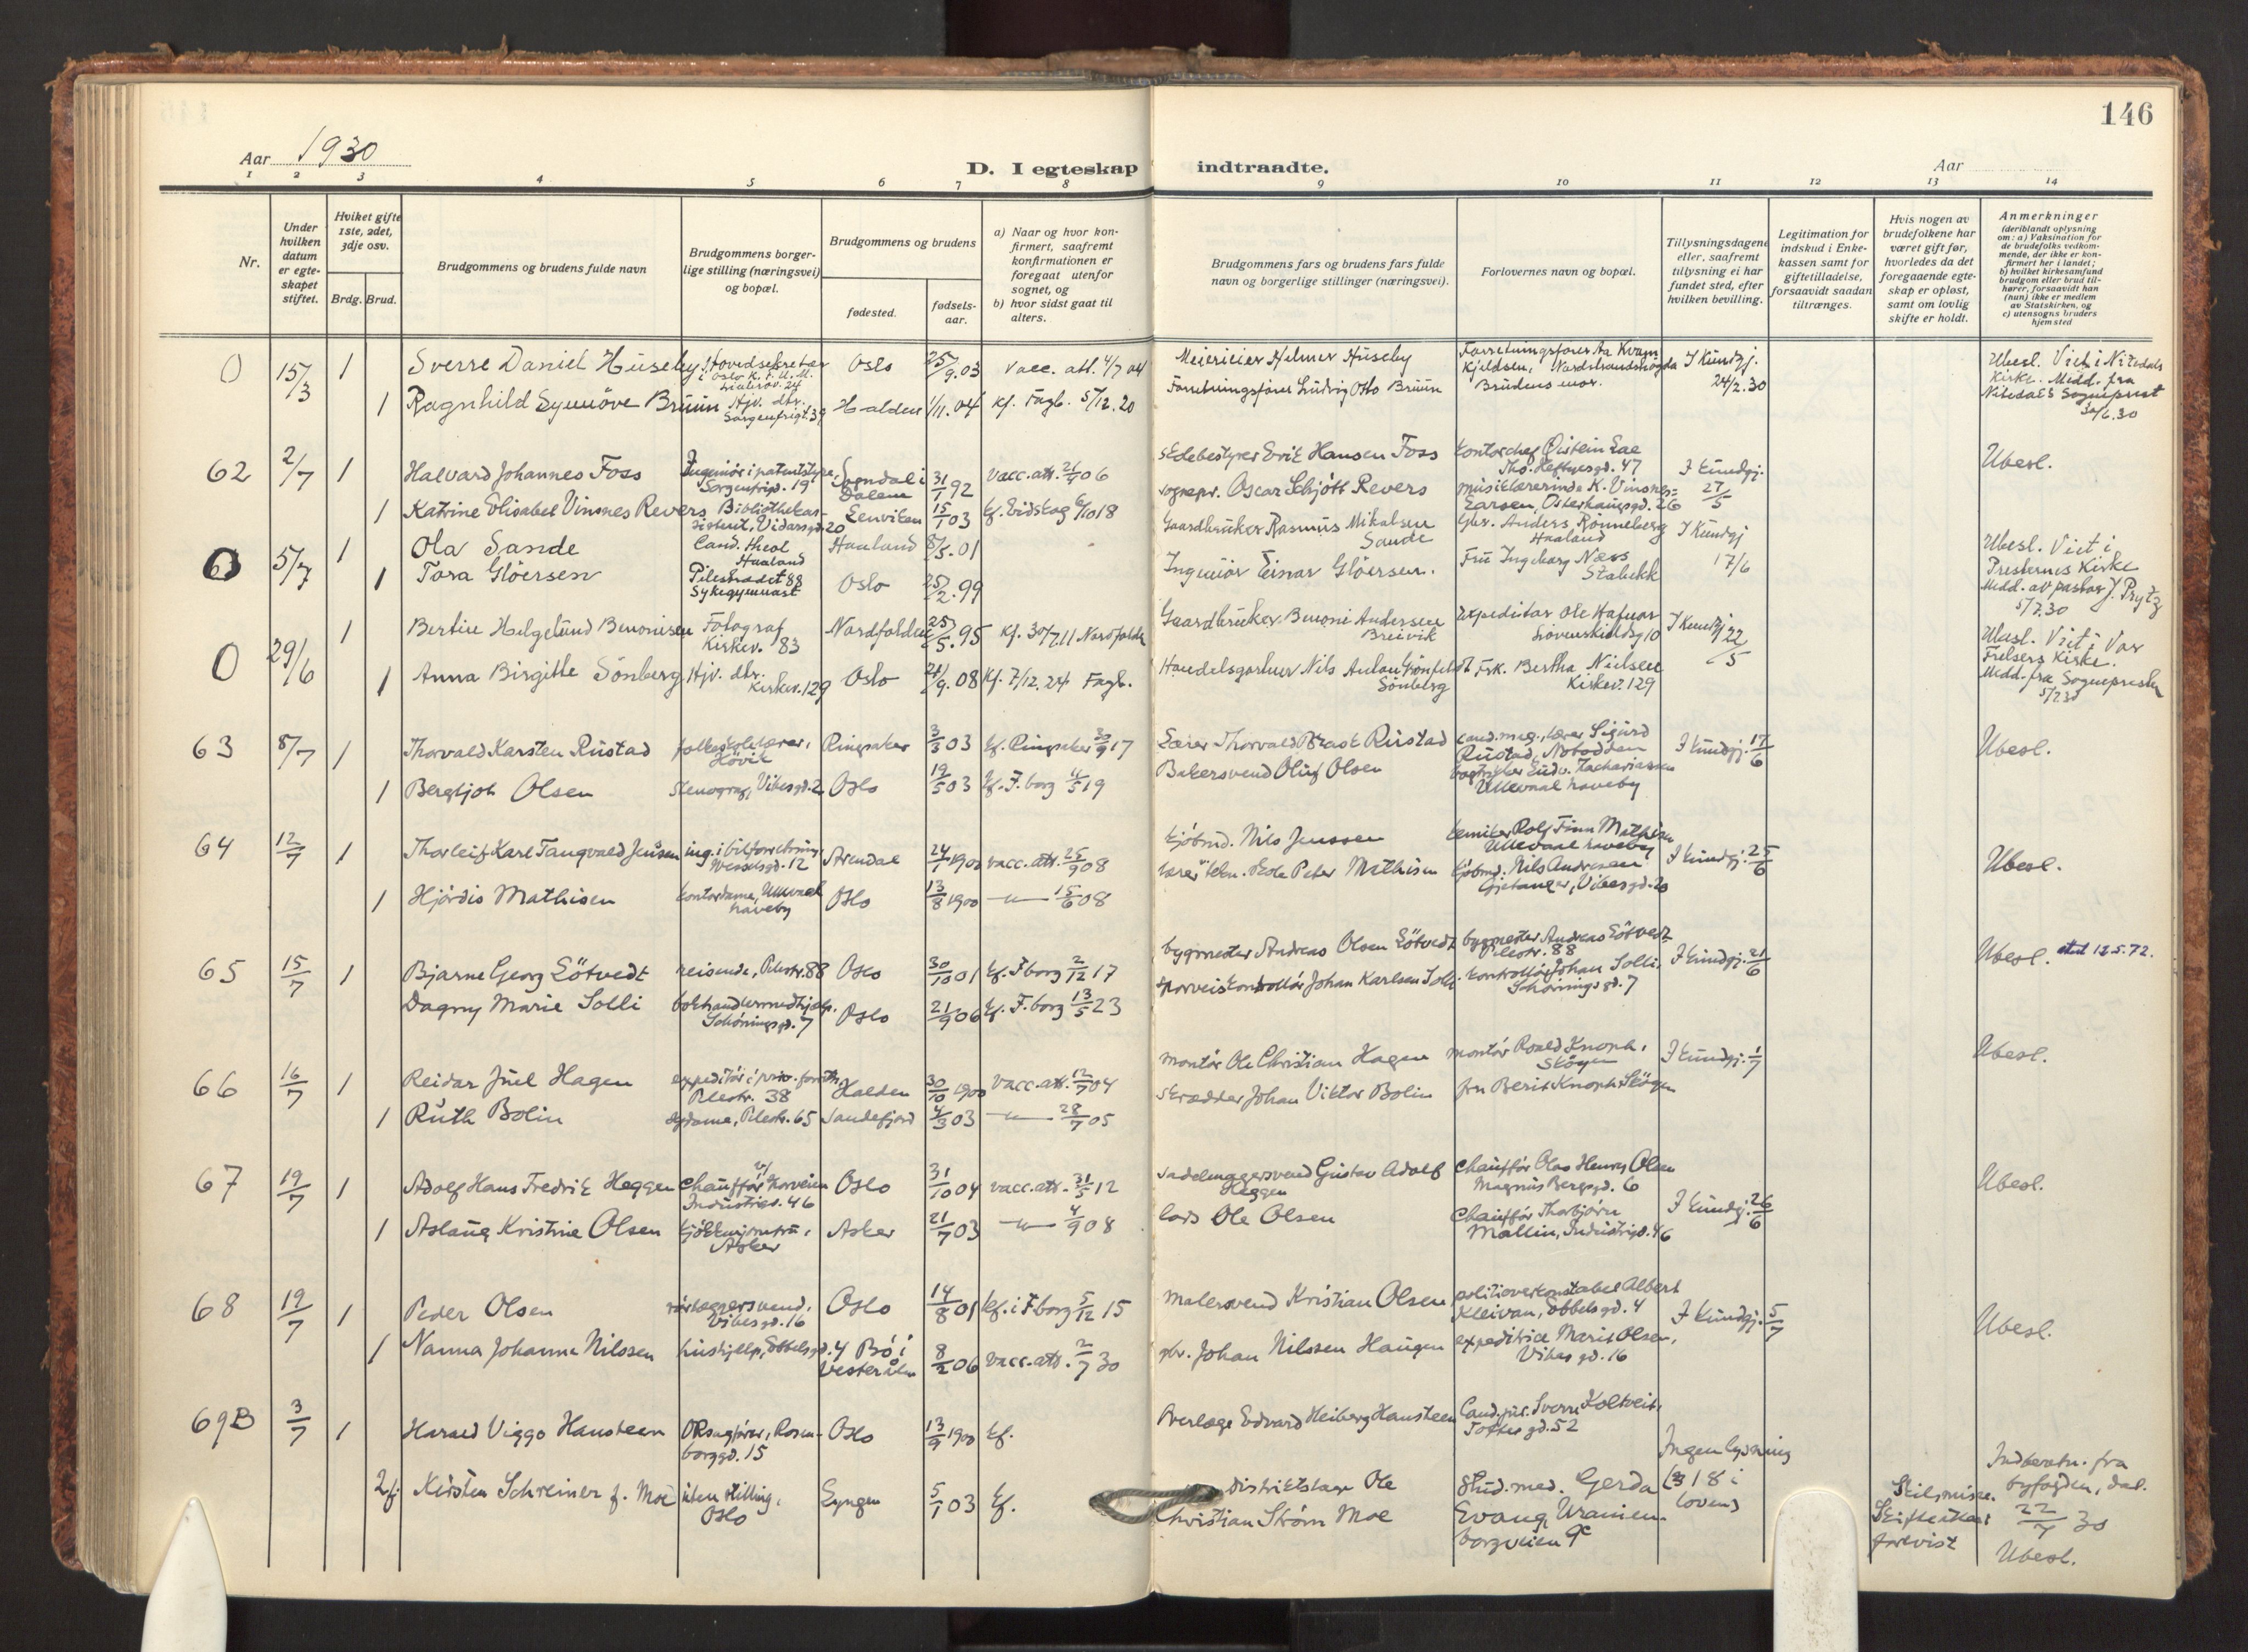 146
Aar 1930
D. I egteskap indtraadte.
Aar
1 2 3 4 5 6 7 8 9 10 11 12 13 14
Nr.
Under hvilken datum er egteskapet stiftet.
Hviket gifte 1ste, 2det, 3dje osv.
Brdg. Brud.
Brudgommens og brudens fulde navn
Brudgommens borgerlige stilling (næringsvei) og bopæl.
Brudgommens og brudens
fødested.
fødselsaar.
a) Naar og hvor konfirmert, saafremt konfirmationen er foregaat utenfor sognet, og
b) hvor sidst gaat til alters.
Brudgommens fars og brudens fars fulde navn og borgerlige stillinger (næringsvei).
Forlovernes navn og bopæl.
Tillysningsdagene eller, saafremt tillysning ei har fundet sted, efter hvilken bevilling.
Legitimation for indskud i Enkekassen samt for giftetilladelse, forsaavidt saadan tiltrænges.
Hvis nogen av brudefolkene har været gift før, hvorledes da det foregaaende egteskap er opløst, samt om lovlig skifte er holdt.
Anmerkninger (deriblandt oplysning om: a) Vaksination for de brudefolks vedkommende, der ikke er konfirmert her i landet; b) hvilket kirkesamfund brudgom eller brud tilhører, forsaavidt han (hun) ikke er medlem av Statskirken, og c) utensogns bruders hjemsted
0 15/3 1 Sverre Daniel Huseby Hovedsekretær i Oslo K.F.U.M. Oslo 25/9.03 Vacc. att. 4/7 04 Meierieier Helmer Huseby Forretningsfører Aa Kvam Kjeldsen, Nordstrandshøgda I Kundgj. 24/2.30 Ubesl. Viet i Nitedals Kirke. Medd. fra Nitedals Sogneprest 30/6.30
1 Ragnhild Synnöve Bruun Hjv. dtr. Sorgenfrigt. 39 Halden 1/11.04 Kf. Fagb. 5/12.20 Forretningsfører Ludvig Otto Bruun Brudens mor.
62 2/7 1 Halvard Johannes Foss Ingeniör i patentstyre, Sorgenfrigd. 19 Sogndal i Dalene 31/1 92 Vacc. att. 21/9 06 Skolebestyrer Erik Hansen Foss Kontorchef Øistein Lae Tho. Heftyesgd. 47 I kundgj. 27/5 Ubesl.
1 Katrine Elisabet Vinsnes Revers Bibliothekassistent, Vidarsgd. 20 Lenviken 15/1 03 kf. Eidskog 6/10 18 sognepr. Oscar Schjött Revers musiklærerinde K. Vinsnes-Larsen, Osterhausgd. 26
0 5/7 1 Ola Sande Cand. theol Haaland Haaland 8/5.01 Gaardbruker Rasmus Mikalsen Sande Gbr. Anders Rönneberg Haaland I Kundgj 17/6 Ubesl. Viet i Presternes Kirke Medd. av pastor J. Prytz 5/7.30
1 Tora Glöersen Pilestrædet 88 Sykegymnast Oslo 25/2.99 Ingeniör Einar Glöersen. Fru Ingeborg Næss Stabekk
0 29/6 1 Bertin Helgelund Benonisen Fotograf Kirkev. 83 Nordfolden 25/5.95 Kf. 30/7.11 Nordfolde Gaardbruker Benoni Andersen Breivik Expeditör Ole Hafnor Lövenskioldsg 10 I Kundgj 22/5 Ubesl. Viet i Vor Frelsers Kirke. Medd. fra Sognepresten 5/7.30
1 Anna Birgitte Sönberg Hjv. dtr. Kirkev. 129 Oslo 21/9.08 Kf. 7/12.24 Fagb. Handelsgartner Nils Anton Grönfeldt Sönberg Frk. Bertha Nielsen Kirkev. 129
63 8/7 1 Thorvald Karsten Rustad folkeskolelærer, Hövik Ringsaker 3/3 03 kf. Ringsaker 30/9 17 Lærer Thorvald Prast Rustad cand. mag., lærer Sigurd Rustad, Notodden I kundgj. 17/6 Ubesl.
1 Bergljot Olsen stenograf, Vibesgd. 2 Oslo 19/5 03 kf. F.borg 4/5 19 Bakersvend Oluf Olsen bogtrykker Ludv. Zachariassen Ullevaal haveby
64 12/7 1 Thorleif Karl Tangvald Jensen ing. i bilforretning, Wesselsgd. 12 Arendal 24/7 1900 vacc. att. 25/9 08 kjöbmd. Nils Jenssen kemiker Rolf Finn Mathisen Ullevaal haveby I kundgj. 25/6 Ubesl.
1 Hjördis Mathisen kontordame, Ullevaal haveby Oslo 13/8 1900 —"— 15/6 08 lærer tekn. skole Peter Mathisen kjöbmd. Nils Andresen Gjetanger, Vibesgd. 20
65 15/7 1 Bjarne Georg Lötvedt reisende, Pilestr. 88 Oslo 30/10 01 kf. F.borg 2/12 17 bygmester Andreas Olsen Lötvedt bygmester Andreas Lötvedt Pilestr. 88 I kundgj. 21/6 Ubesl. skil 12.5.72.
Dagny Marie Solli bokhandlermedhjelp. Schöningsgd. 7 Oslo 21/9 06 kf. F.borg 13/5 23 Sporveiskontrollör Johan Karlsen Solli kontrollör Johan Solli, Schöningsgd. 7
66 16/7 1 Reidar Juel Hagen expeditör i prov. forretn. Pilestr. 38 Halden 30/10 1900 vacc. att. 12/7 04 montör Ole Christian Hagen montör Roald Knoph, Skögen I kundgj. 1/7 Ubesl.
1 Ruth Bolin sydame, Pilestr. 65 Sandefjord 4/3 03 —"— 28/7 05 skrædder Johan Viktor Bolin fru Berit Knoph Skögen
67 19/7 1 Adolf Hans Fredrik Heggen chauffør v/ Sporveien Industrigd. 46 Oslo 31/10 04 vacc. att. 31/5 12 sadelmagersvend Gustav Adolf Heggen chauffør Olav Henry Olsen Magnus Bergsgd. 6 I kundgj. 26/6 Ubesl.
1 Aslaug Kristine Olsen kjökkenjomfru, Asker Asker 21/7 03 —"— 4/9 08 lods Ole Olsen chauffør Thorbjørn Mallin, Industrigd. 46
68 19/7 1 Peder Olsen rörlæggersvend, Vibesgd. 16 Oslo 14/8 01 kf. i F.borg 5/12 15 Malersvend Kristian Olsen politioverkonstabel Albert Kleivan, Ebbelsgd. 4 I kundgj. 5/7 Ubesl.
1 Nanna Johanne Nilssen hushjelp, Ebbelsgd. 4 Bö i Vesterålen 8/2 06 vacc. att. 2/7 30 gbr. Johan Nilssen Haugen expeditrice Marie Olsen, Vibesgd. 16
69B 3/7 1 Harald Viggo Hansteen ORsagfører, Rosenborggd. 15 Oslo 13/9 1900 kf. Overlæge Edvard Heiberg Hansteen Cand. jur. Sverre Koltveit, Toftesgd. 52 Ingen lysning (§ 18 i loven) Indberetn. fra byfogden, dat. 22/7 30 Ubesl.
2 f. Kirsten Schreiner f. Moe uten stilling, Oslo Lyngen 5/1 03 kf. Distriktslæge Ole Christian Ström Moe Stud. med. Gerda Evang, Uranienborgveien 9c Skilsmisse. Skifteattest forevist